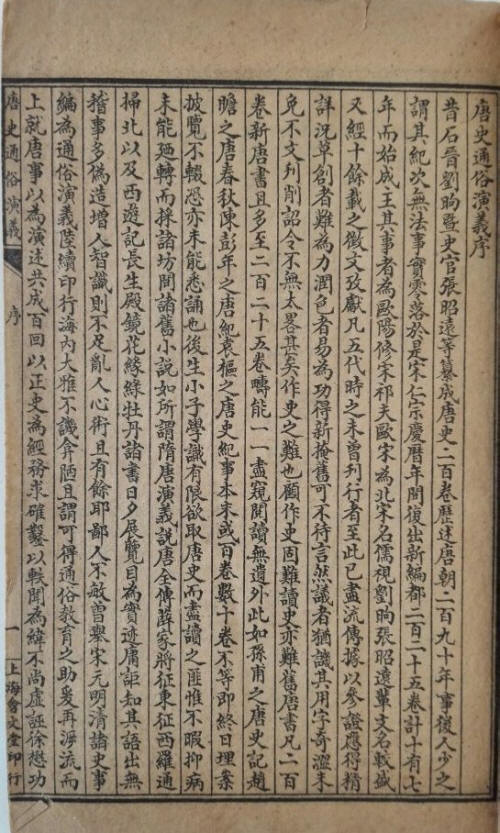 唐史通俗演義序
昔石晉劉昫暨史官張昭遠等纂成唐史二百卷歷述唐朝二百九十年事後人少之
謂其紀次無法事實零落於是宋仁宗慶曆年間復出新編都二百二十五卷計十有七
年而始成主其事者為歐陽修宋祁夫歐宋為北宋名儒視劉昫張昭遠輩文名較盛
又經十餘載之徵文攷獻凡五代時之未曾刊行者至此已盡流傳據以參證應得精
詳況草創者難為力潤色者易為功得新掩舊可不待言然議者猶譏其用字奇澀未
免不文刋削詔令不無太畧甚矣作史之難也顧作史固難讀史亦難舊唐書凡二百
卷新唐書且多至二百二十五卷疇能一一盡窺閱讀無遺外此如孫甫之唐史記趙
瞻之唐春秋陳彭年之唐紀袁樞之唐史紀事本末或百卷數十卷不等即終日埋案
披覽不輟恐亦未能悉誦也後生小子學識有限欲取唐史而盡讀之匪惟不暇抑病
未能廻轉而採諸坊間諸舊小說如所謂隋唐演義說唐全傳薛家將征東征西羅通
掃北以及西遊記長生殿鏡花緣綠牡丹諸書日夕展覽目為實迹庸詎知其語出無
稽事多偽造增人智識則不足亂人心術且有餘耶鄙人不敏曾舉宋元明清諸史事
編為通俗演義陸續印行海內大雅不譏弇陋且謂可得通俗教育之助爰再泝流而
上就唐事以為演述共成百回以正史為經務求確鑿以軼聞為緯不尚虛誣徐懋功
唐史通俗演義
序
一
上海會文堂印行